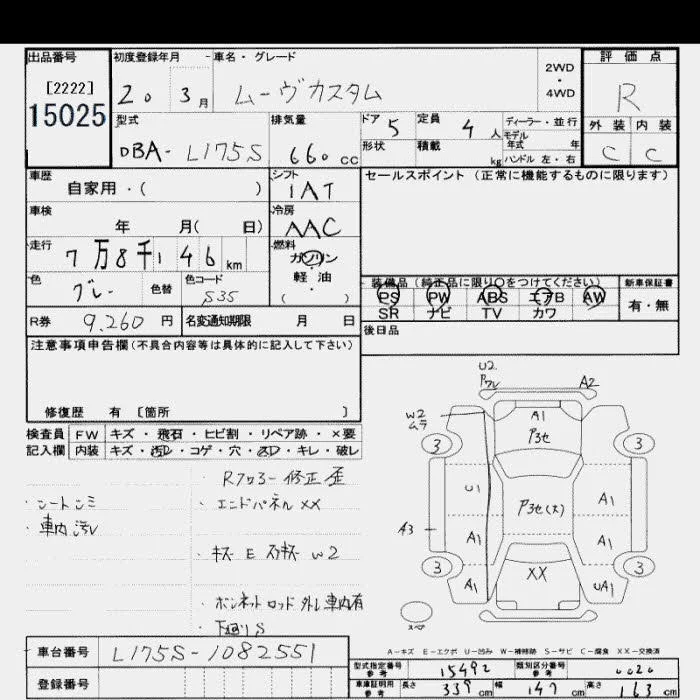 出品番号
[2222]
15025
初度登録年月
20 3月
車名・グレード
ムーヴカスタム
2WD
・
4WD
評価点
R
外装 内装
C C
型式
DBA- L175S
排気量
660 cc
ドア 5
定員 4人
形状
積載 kg
ディーラー・並行
モデル
年式 年
ハンドル 左・右
車歴
自家用・( )
シフト
IAT
車検
年 月( 日)
冷房
AAC
走行
7万8千146km
燃料
ガソリン
・
軽油
( )
色
グレー
色替
色コード
S35
R券 9,260 円
名変通知期限 月 日
セールスポイント(正常に機能するものに限ります)
装備品(純正品に限り〇をつけてください)
PS PW ABS エアB AW
SR ナビ TV カワ
新車保証書
有・無
後日品
注意事項申告欄(不具合内容等は具体的に記入して下さい)
修復歴 有 [箇所 ]
検査員
記入欄
FW キズ・飛石・ヒビ割・リペア跡・×要
内装 キズ・汚レ・コゲ・穴・スレ・キレ・破レ
・シートシミ
・車内汚レ
・Rフロアー修正歪
・エンドパネルXX
・キズ E スリキズ W2
・ボンネットロッド外レ車内有
・下廻りS
U2
アレ
A2
W2
ムラ
A1
ア3セ
3
3
U1
ア3セ(大)
A1
A3
A1
A1
3
3
A1
XX
UA1
スペア
A-キズ E-エクボ U-凹み W-補修跡 S-サビ C-腐食 XX-交換済
車台番号
L175S-1082551
登録番号
型式指定番号
参考
15492
類別区分番号
参考
車庫証明用
参考
長さ 339cm 幅 147cm 高さ 163cm